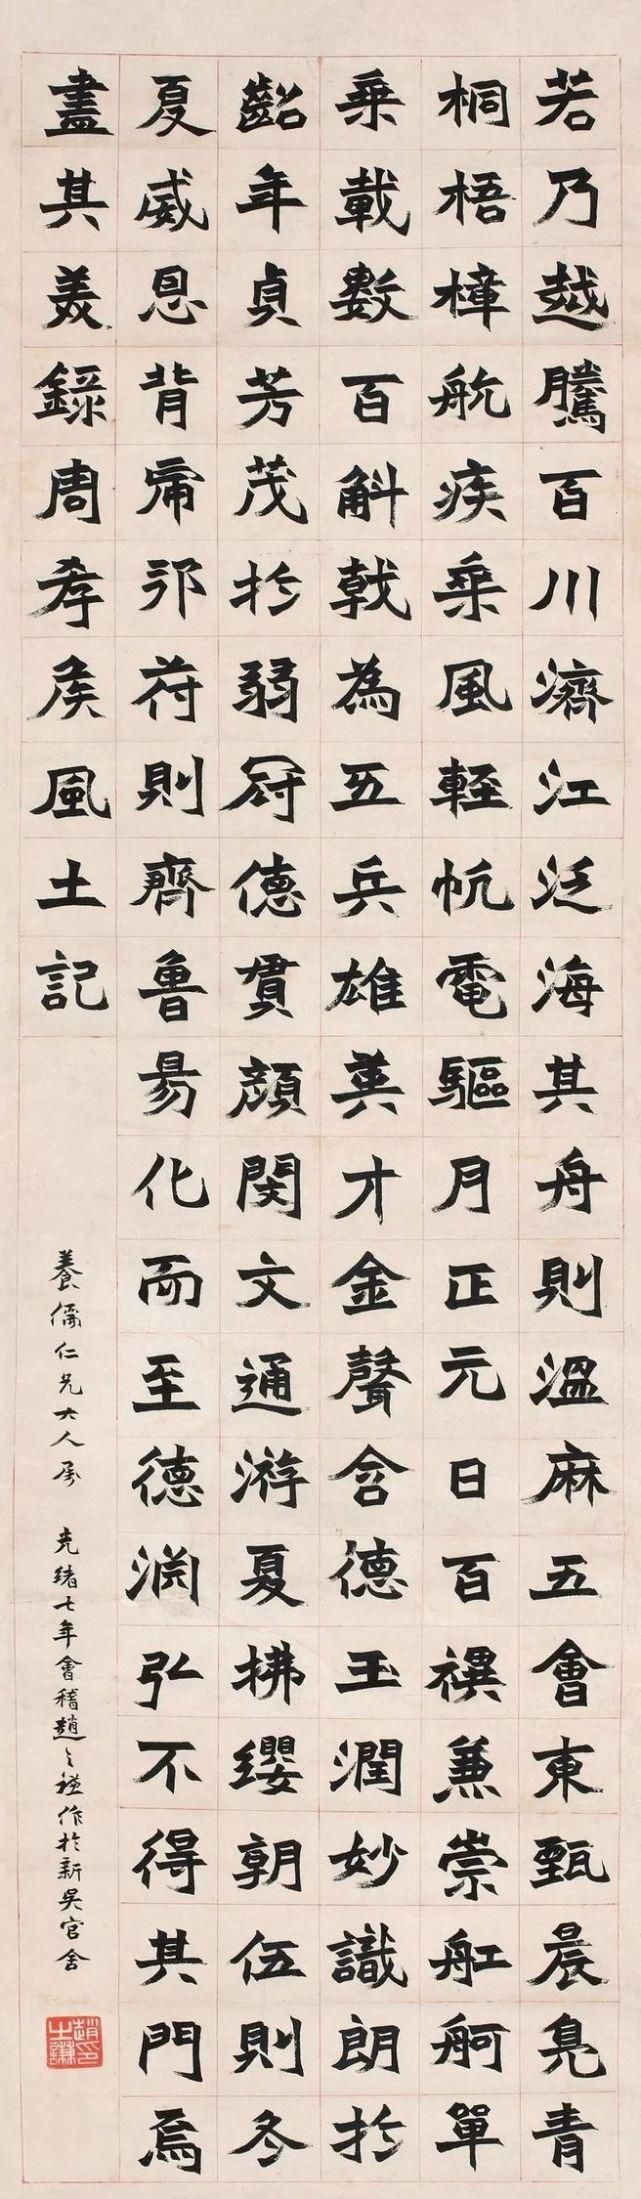 若乃越騰百川濟江泛海其舟則溫麻五會東甄晨鳧青
桐梧樟航疾乘風輕帆電驅月正元日百禩兼崇舡舸單
乘載數百斛戟為五兵雄英才金聲含德玉潤妙識朗於
齠年貞芳茂於弱冠德貫顏閔文通游夏拂纓朝伍則冬
夏威恩背帝邠苻則齊魯易化而至德淵弘不得其門焉
盡其美錄周孝侯風土記
養儒仁兄大人屬 光緒七年會稽趙之謙作於新吳官舍
趙之謙印